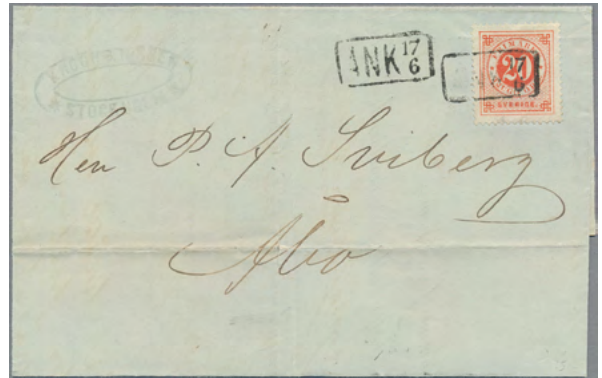 & STOCKHOLM
ANK 17
6
17
6
20
SVERIGE.
Herr P. A. Sviberg
Åbo